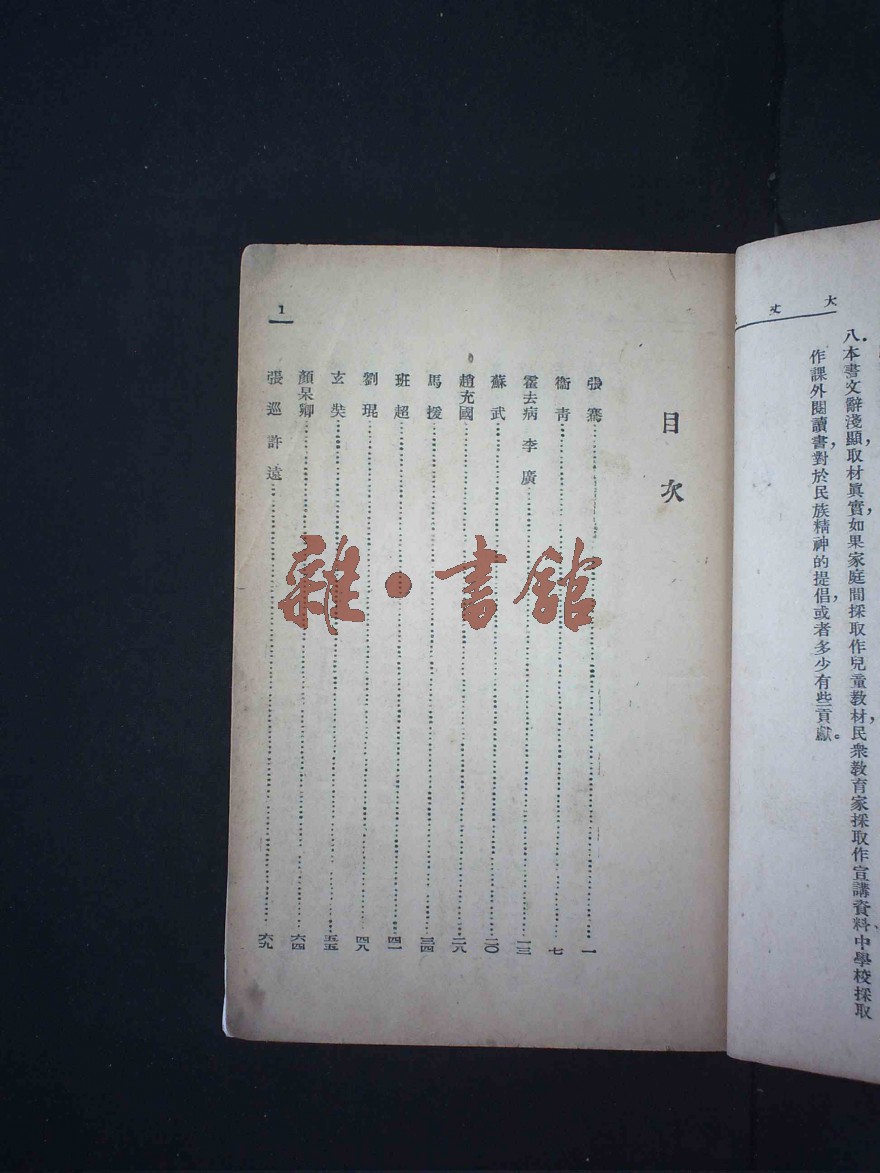 大丈
八．本書文辭淺顯，取材眞實，如果家庭間採取作兒童教材，民衆教育家採取作宣講資料、中學校採取
作課外閱讀書，對於民族精神的提倡，或者多少有些貢獻。
1
目次
張騫…………一
衞青…………七
霍去病 李廣…………一三
蘇武…………二〇
趙充國…………二八
馬援…………三四
班超…………四一
劉琨…………四八
玄奘…………五五
顏杲卿…………六四
張巡 許遠…………六九
雜·書館